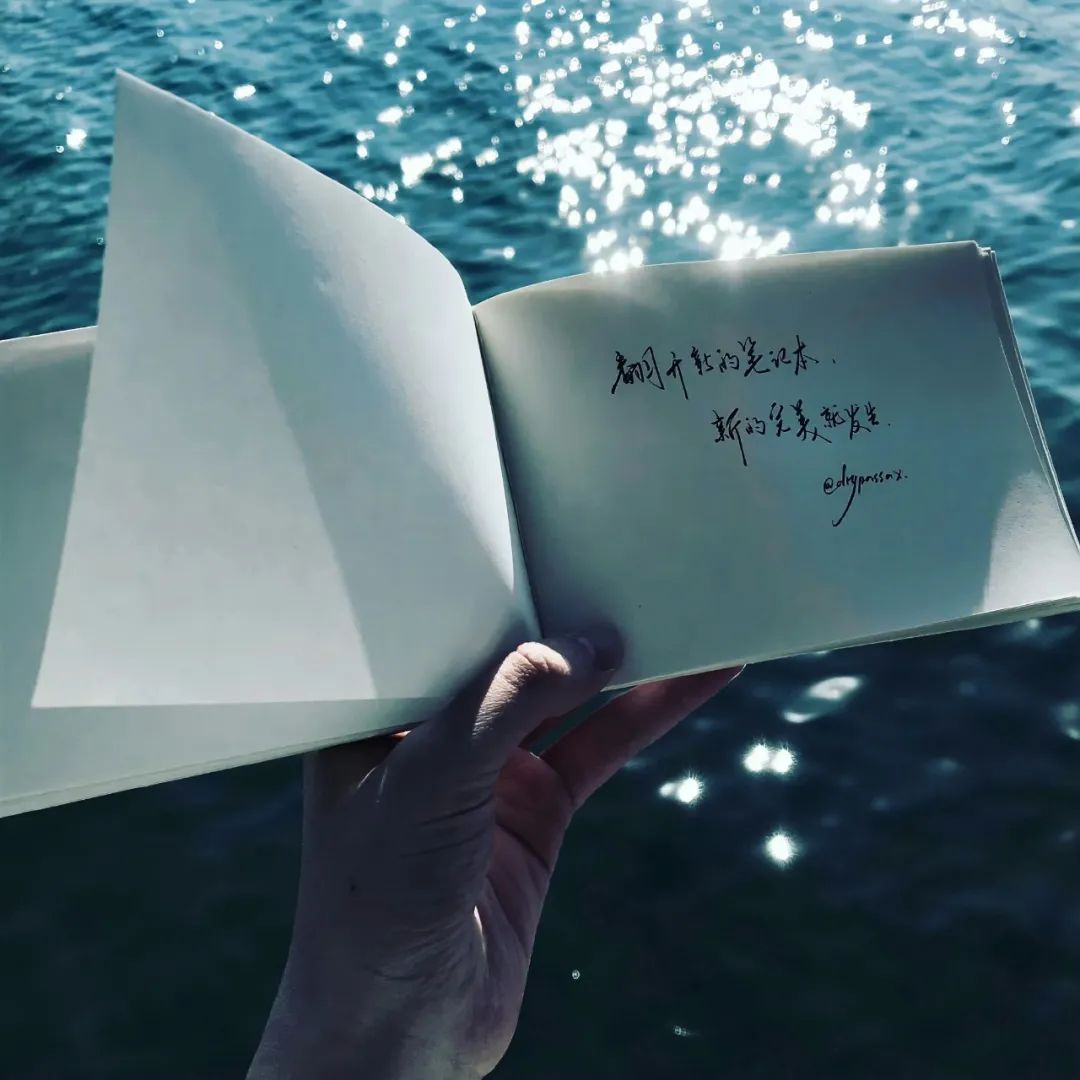 翻开新的笔记本，
新的完美就发生.
@drypassax.